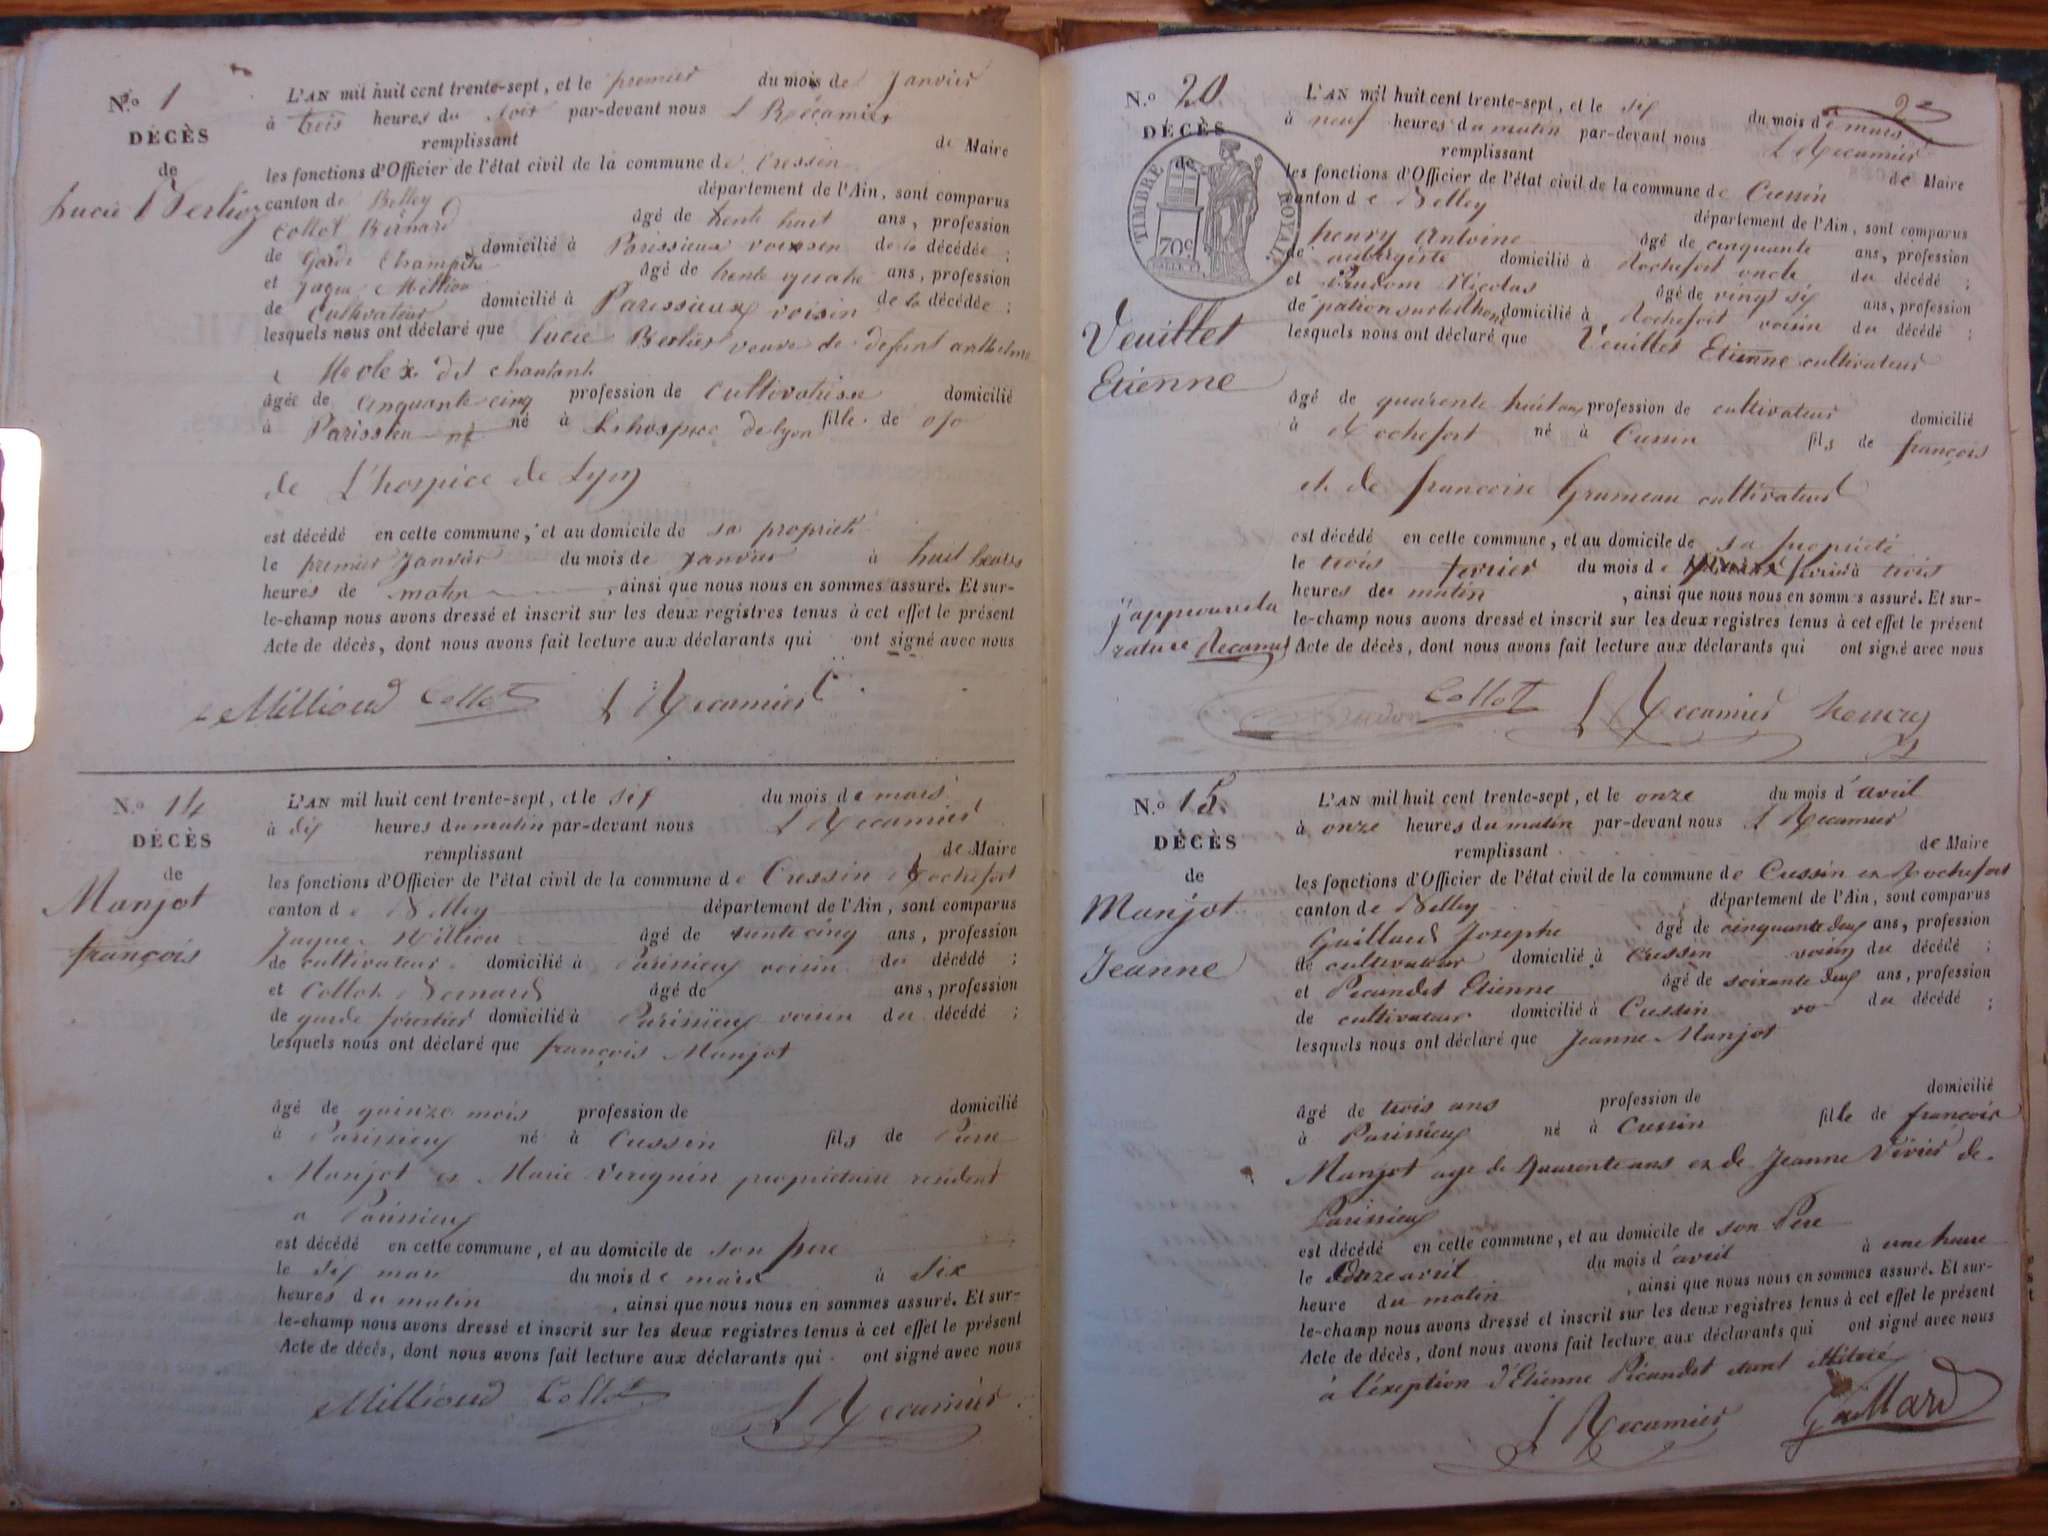 N.o 1
DÉCÈS
de
Lucie Berlioz
L'AN mil huit cent trente-sept, et le premier du mois de Janvier
à trois heures du soir par-devant nous L Récamier
remplissant de Maire
les fonctions d'Officier de l'état civil de la commune de Cressin
canton de Belley département de l'Ain, sont comparus
Collot Bernard âgé de trente huit ans, profession
de Garde Champetre domicilié à Parissieux voissin de la décédée ;
et Jaque Million âgé de trente quatre ans, profession
de Cultivateur domicilié à Parissieux voisin de la décédée ;
lesquels nous ont déclaré que lucie Berlier veuve de defunt anthelme
dit chantant
âgée de cinquante cinq profession de Cultivatrisse domicilié
à Parissieu né à L'hospice de lyon fille de
de L'hospice de Lyon
est décédé en cette commune, et au domicile de sa propriété
le premier Janvier du mois de Janvier à huit heures
heures de matin , ainsi que nous nous en sommes assuré. Et sur-
le-champ nous avons dressé et inscrit sur les deux registres tenus à cet effet le présent
Acte de décès, dont nous avons fait lecture aux déclarants qui ont signé avec nous
Milliond Collot L Recamier
N.o 14
DÉCÈS
de
Manjot
françois
L'AN mil huit cent trente-sept, et le six du mois de mars
à dix heures du matin par-devant nous L Recamier
remplissant de Maire
les fonctions d'Officier de l'état civil de la commune de Cressin Rochefort
canton de Belley département de l'Ain, sont comparus
Jaque Milliou âgé de trente cinq ans, profession
de cultivateur domicilié à Parissieux voisin du décédé ;
et Collot Bernard âgé de ans, profession
de garde forestier domicilié à Parissieux voisin du décédé ;
lesquels nous ont déclaré que françois Manjot
âgé de quinze mois profession de domicilié
à Parissieux né à Cressin fils de Pierre
Manjot et Marie proprietaire résident
a Parissieux
est décédé en cette commune, et au domicile de son pere
le six mars du mois de mars à six
heures du matin , ainsi que nous nous en sommes assuré. Et sur-
le-champ nous avons dressé et inscrit sur les deux registres tenus à cet effet le présent
Acte de décès, dont nous avons fait lecture aux déclarants qui ont signé avec nous
Milliond Collot L Recamier
N.o 20
DÉCÈS
de
TIMBRE ROYAL
70c
Veuillet
Etienne
2e
L'AN mil huit cent trente-sept, et le six du mois de mars
à neuf heures du matin par-devant nous L Recamier
remplissant de Maire
les fonctions d'Officier de l'état civil de la commune de Cressin
canton de Belley département de l'Ain, sont comparus
henry Antoine âgé de cinquante ans, profession
de aubergiste domicilié à Rochefort oncle du décédé ;
et Prudom Nicolas âgé de vingt six ans, profession
de domicilié à Rochefort voisin du décédé ;
lesquels nous ont déclaré que Veuillet Etienne cultivateur
âgé de quarente huit ans profession de cultivateur domicilié
à Rochefort né à Cressin fils de françois
et de francoise Grumeau cultivateur
est décédé en cette commune, et au domicile de sa propriété
le trois fevrier du mois de fevrier à trois
heures du matin , ainsi que nous nous en sommes assuré. Et sur-
le-champ nous avons dressé et inscrit sur les deux registres tenus à cet effet le présent
Acte de décès, dont nous avons fait lecture aux déclarants qui ont signé avec nous
j'approuve la
rature Recamier
Collot L Recamier henry
N.o 15
DÉCÈS
de
Manjot
Jeanne
L'AN mil huit cent trente-sept, et le onze du mois d'avril
à onze heures du matin par-devant nous L Recamier
remplissant de Maire
les fonctions d'Officier de l'état civil de la commune de Cressin et Rochefort
canton de Belley département de l'Ain, sont comparus
Gaillard Josephe âgé de cinquante deux ans, profession
de cultivateur domicilié à Cressin voisin du décédé ;
et Picundet Etienne âgé de soixante deux ans, profession
de cultivateur domicilié à Cressin vo du décédé ;
lesquels nous ont déclaré que Jeanne Manjot
âgé de trois ans profession de domicilié
à Parissieux né à Cressin fille de françois
Manjot age de Quarente ans et de Jeanne Vivier de
Parissieux
est décédé en cette commune, et au domicile de son Pere
le onze avril du mois d'avril à une heure
heure du matin , ainsi que nous nous en sommes assuré. Et sur-
le-champ nous avons dressé et inscrit sur les deux registres tenus à cet effet le présent
Acte de décès, dont nous avons fait lecture aux déclarants qui ont signé avec nous
à l'éxeption d'Etienne Picundet
L Recamier Gaillard